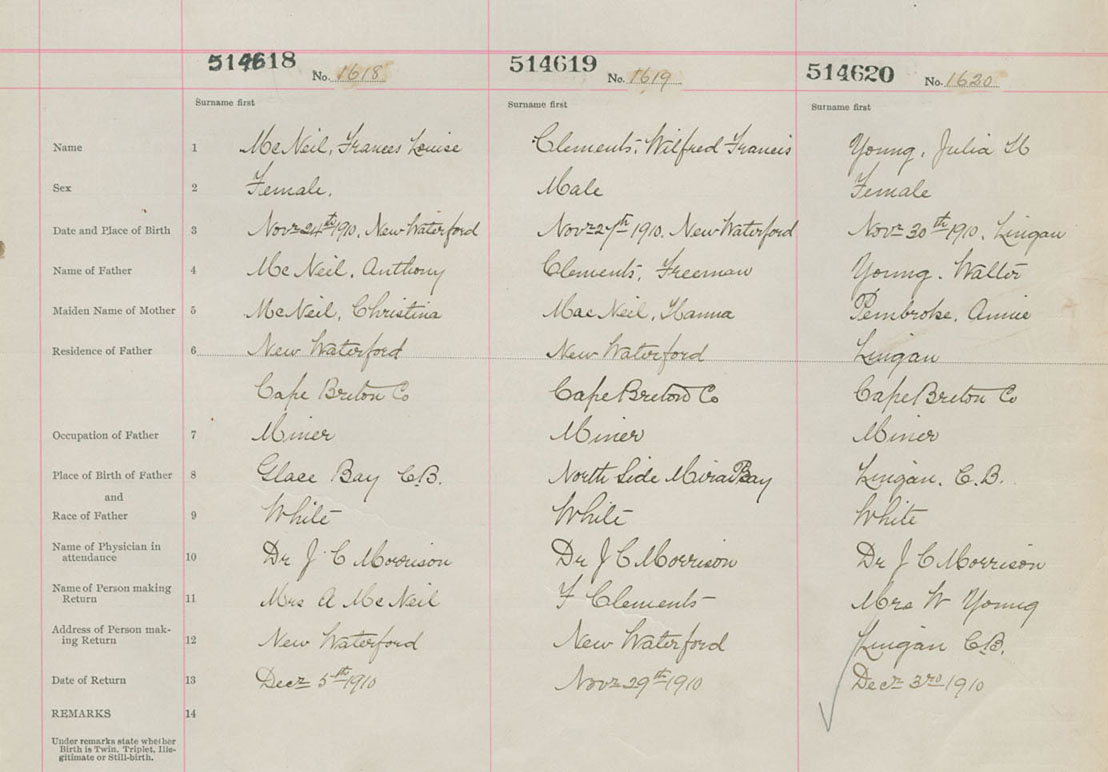 514618 No. 1618 514619 No. 1619 514620 No. 1620
Surname first Surname first Surname first
Name 1 McNeil, Frances Louise Clements, Wilfred Francis Young, Julia M
Sex 2 Female. Male Female
Date and Place of Birth 3 Novr 24th 1910, New Waterford Novr 27th 1910. New Waterford Novr 30th 1910. Lingan
Name of Father 4 McNeil, Anthony Clements, Freeman Young. Walter
Maiden Name of Mother 5 McNeil, Christina MacNeil, Hanna Pembroke, Annie
Residence of Father 6 New Waterford New Waterford Lingan
Cape Breton Co Cape Breton Co Cape Breton Co
Occupation of Father 7 Miner Miner Miner
Place of Birth of Father 8 Glace Bay C.B. North Side Mira Bay Lingan. C.B.
and
Race of Father 9 White White White
Name of Physician in
attendance 10 Dr J C Morrison Dr J C Morrison Dr J C Morrison
Name of Person making
Return 11 Mrs A McNeil F Clements Mrs W Young
Address of Person mak-
ing Return 12 New Waterford New Waterford Lingan C.B.
Date of Return 13 Decr 5th 1910 Novr 29th 1910 Decr 3rd 1910
REMARKS 14
Under remarks state whether
Birth is Twin, Triplet, Ille-
gitimate or Still-birth.